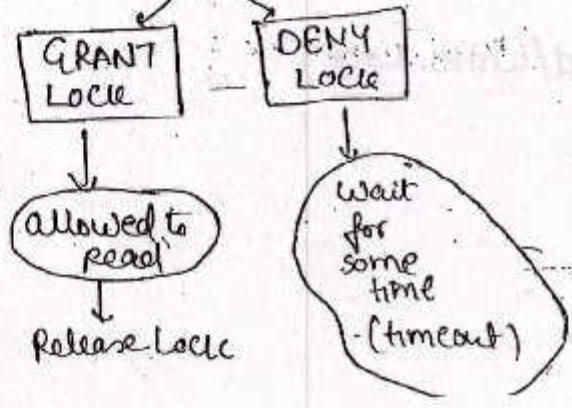 GRANT
LOCK
DENY
LOCK
allowed to
read
Release Lock
Wait
for
some
time
-(timeout)